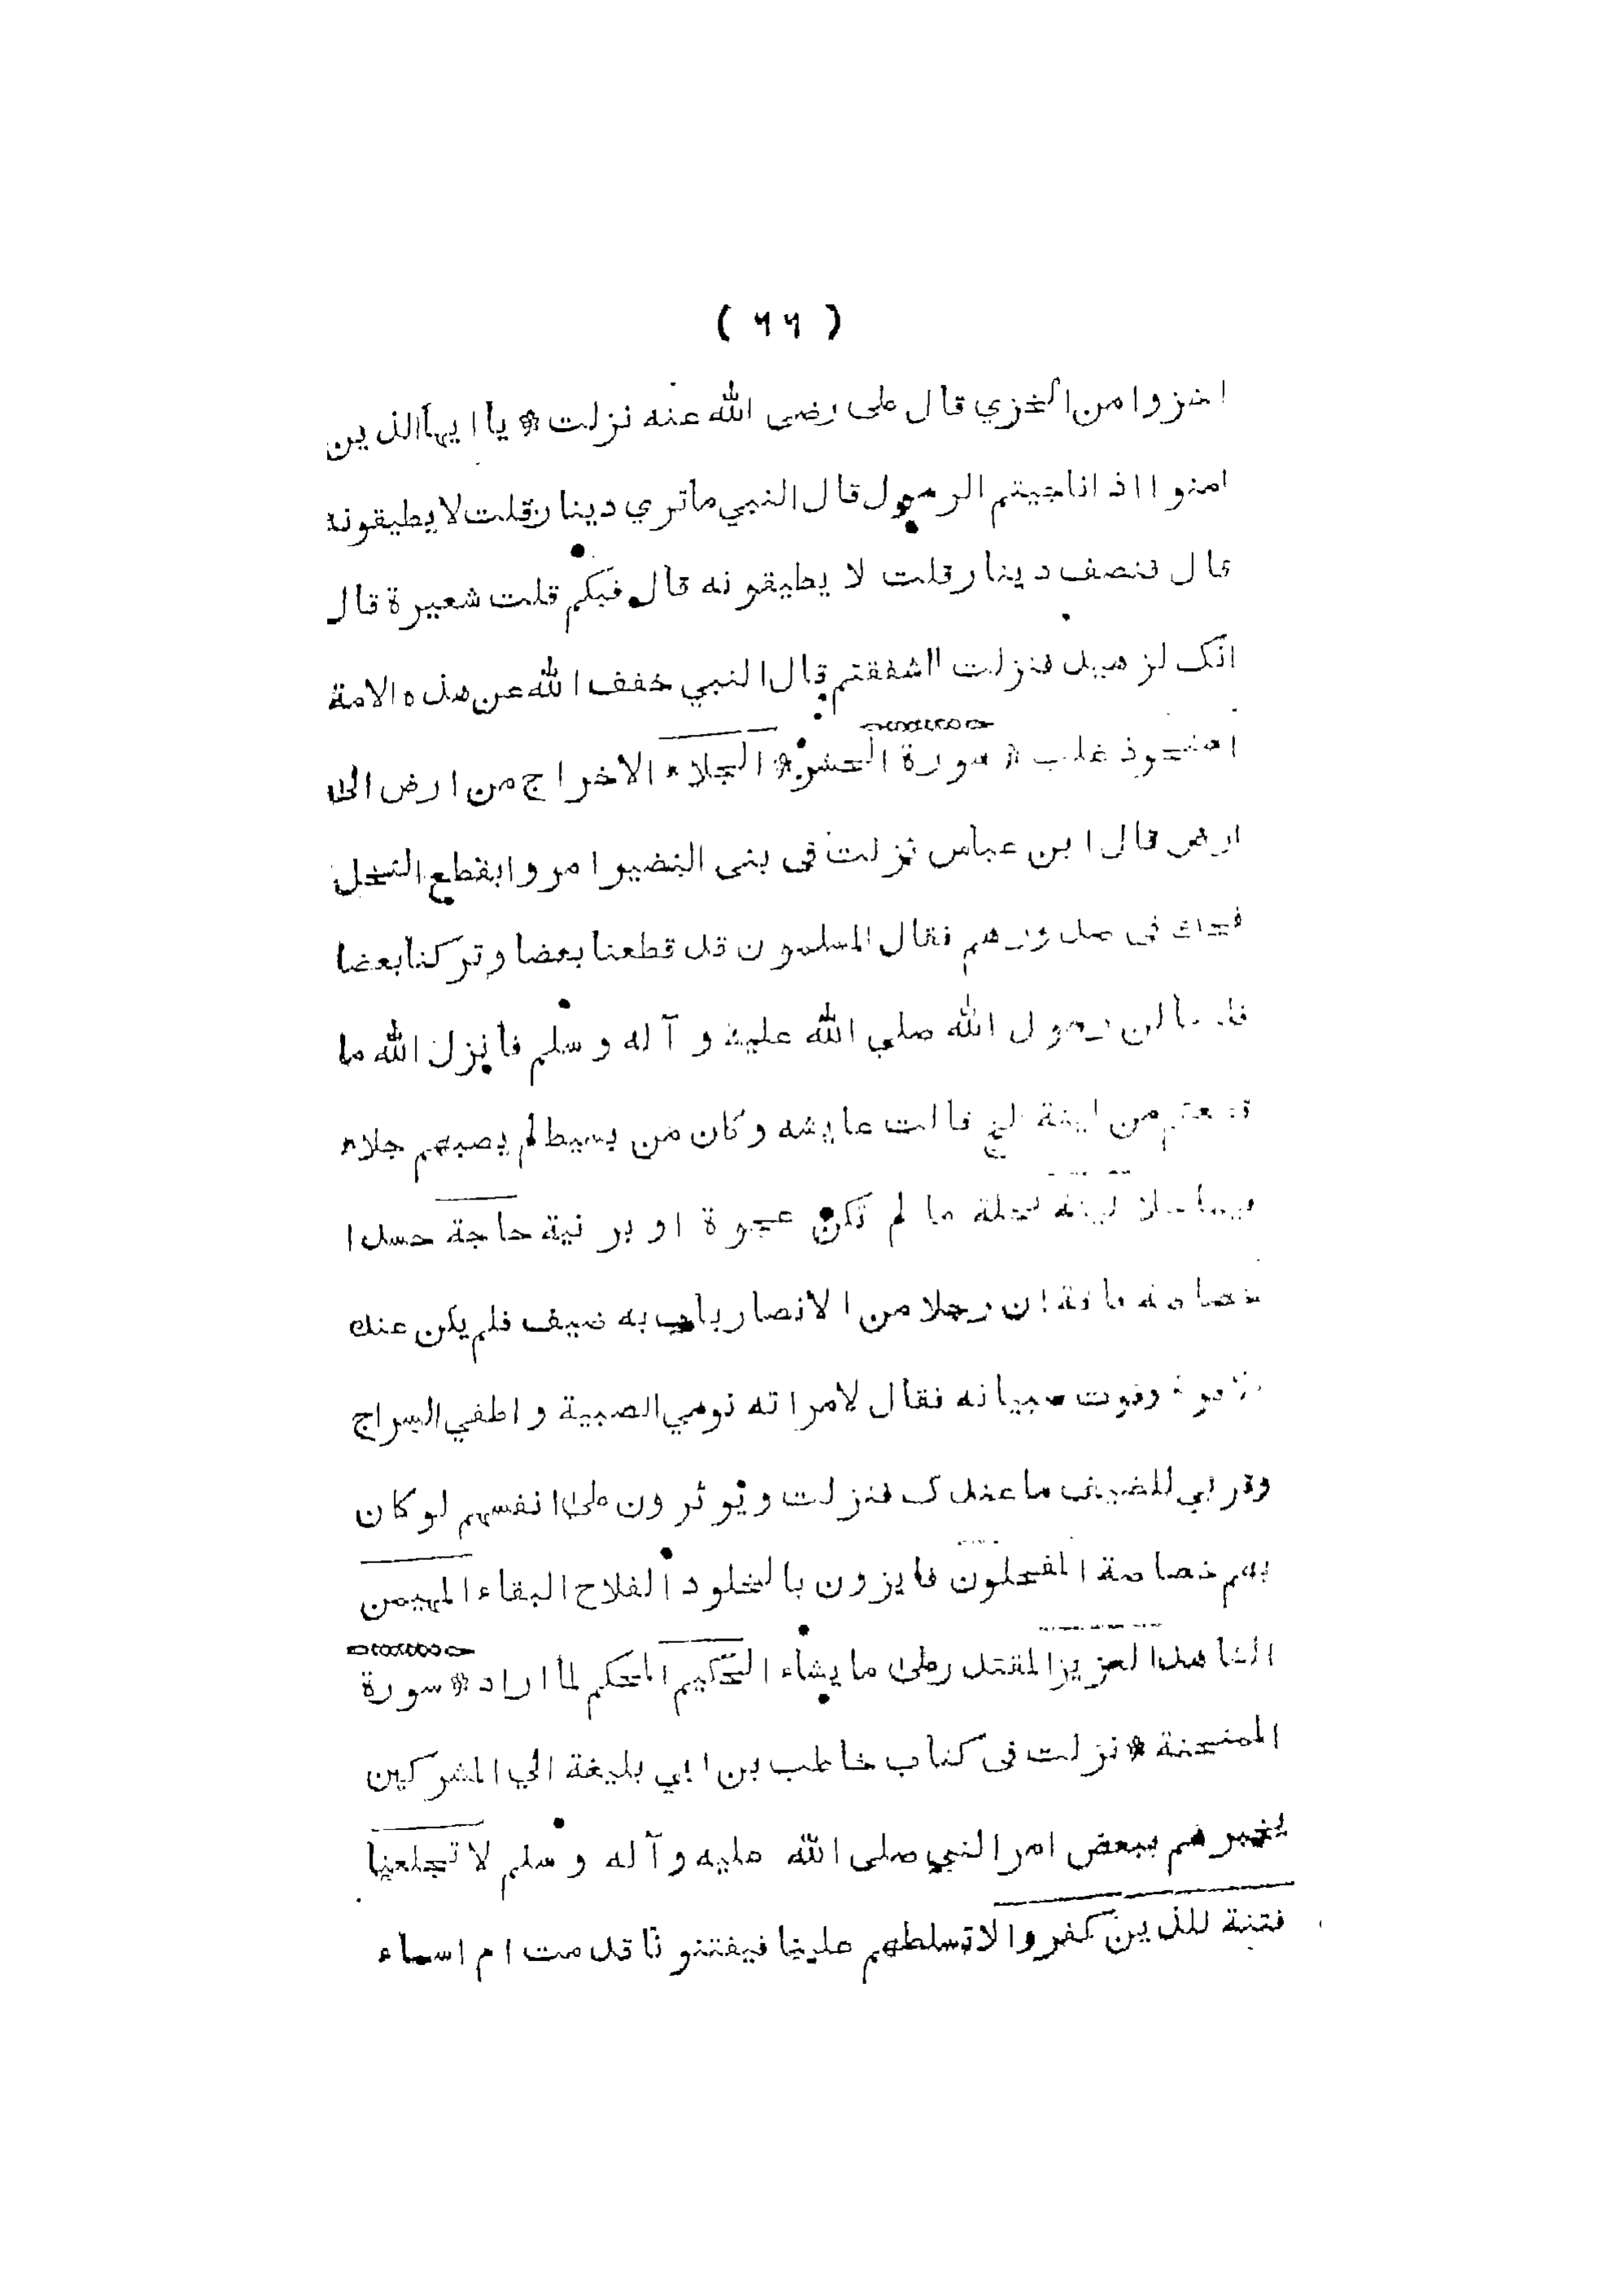 ( ٦٦ )
اخزوا من الخزي قال على رضى الله عنه نزلت * يا ايها الذين
امنوا اذا ناجيتم الرسول قال النبي ما تري دينار قلت لا يطيقونه
قال فنصف دينار قلت لا يطيقونه قال فبكم قلت شعيرة قال
انک لزهيد فنزلت ااشفقتم قال النبي خفف الله عن هذه الامة
استحوذ غلب * سورة الحشر * الجلاء الاخراج من ارض الى
ارض قال ابن عباس نزلت فى بنى النضير امروا بقطع النخل
فحاك فى صدورهم فقال المسلمون قد قطعنا بعضا وتركنا بعضا
رسول الله صلي الله عليه و آله و سلم فانزل الله ما
قطعتم من لينة الخ قالت عايشه و كان من بسيط لم يصبهم جلاء
لينة نخلة ما لم تكن عجوة او برنية حاجة حسدا
خصاصة فاقة ان رجلا من الانصار بات به ضيف فلم يكن عنده
وقوت صبيانه فقال لامراته نومي الصبية و اطفي السراج
وقربي للضيف ما عندک فنزلت ويوثرون على انفسهم لو كان
بهم خصاصة المفحلون فايزون بالخلود الفلاح البقاء المهيمن
الشاهد العزيز المقتدر على ما يشاء الحكيم المحكم لما اراد * سورة
الممتحنة * نزلت فى كتاب خاطب بن ابي بليغة الي المشركين
يخبرهم ببعض امر النبي صلى الله عليه و آله و سلم لا تجلعنا
فتنة للذين كفروا لا تسلطهم علينا فيفتنونا قدمت ام اسماء